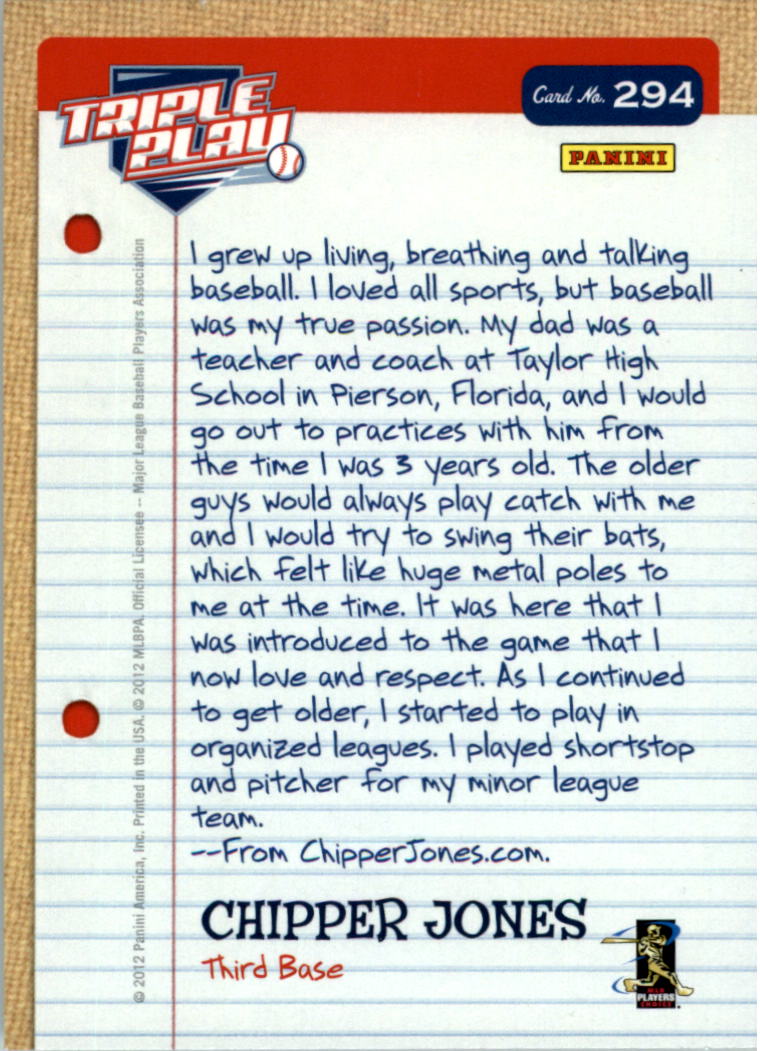 TRIPLE
PLAY
Card No. 294
PANINI
I grew up living, breathing and talking
baseball. I loved all sports, but baseball
was my true passion. My dad was a
teacher and coach at Taylor High
School in Pierson, Florida, and I would
go out to practices with him from
the time I was 3 years old. The older
guys would always play catch with me
and I would try to swing their bats,
which felt like huge metal poles to
me at the time. It was here that I
was introduced to the game that I
now love and respect. As I continued
to get older, I started to play in
organized leagues. I played shortstop
and pitcher for my minor league
team.
--From ChipperJones.com.
CHIPPER JONES
Third Base
MLB
PLAYERS
CHOICE
© 2012 Panini America, Inc. Printed in the USA. © 2012 MLBPA. Official Licensee -- Major League Baseball Players Association